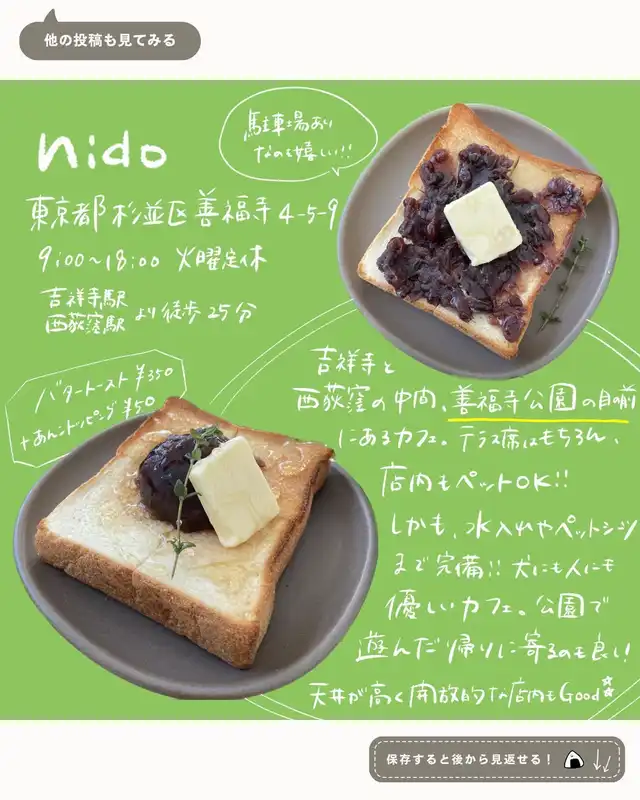 他の投稿も見てみる
nido
駐車場あり
なのも嬉しい!!
東京都杉並区善福寺4-5-9
9:00~18:00 火曜定休
吉祥寺駅
西荻窪駅 より徒歩25分
バタートースト¥350
+あんトッピング¥50
吉祥寺と
西荻窪の中間、善福寺公園の目前
にあるカフェ。テラス席はもちろん、
店内もペットOK!!
しかも、水入れやペットシーツ
まで完備!! 犬にも人にも
優しいカフェ。公園で
遊んだ帰りに寄るのも良い!
天井が高く開放的な店内もGood☆☆
保存すると後から見返せる!